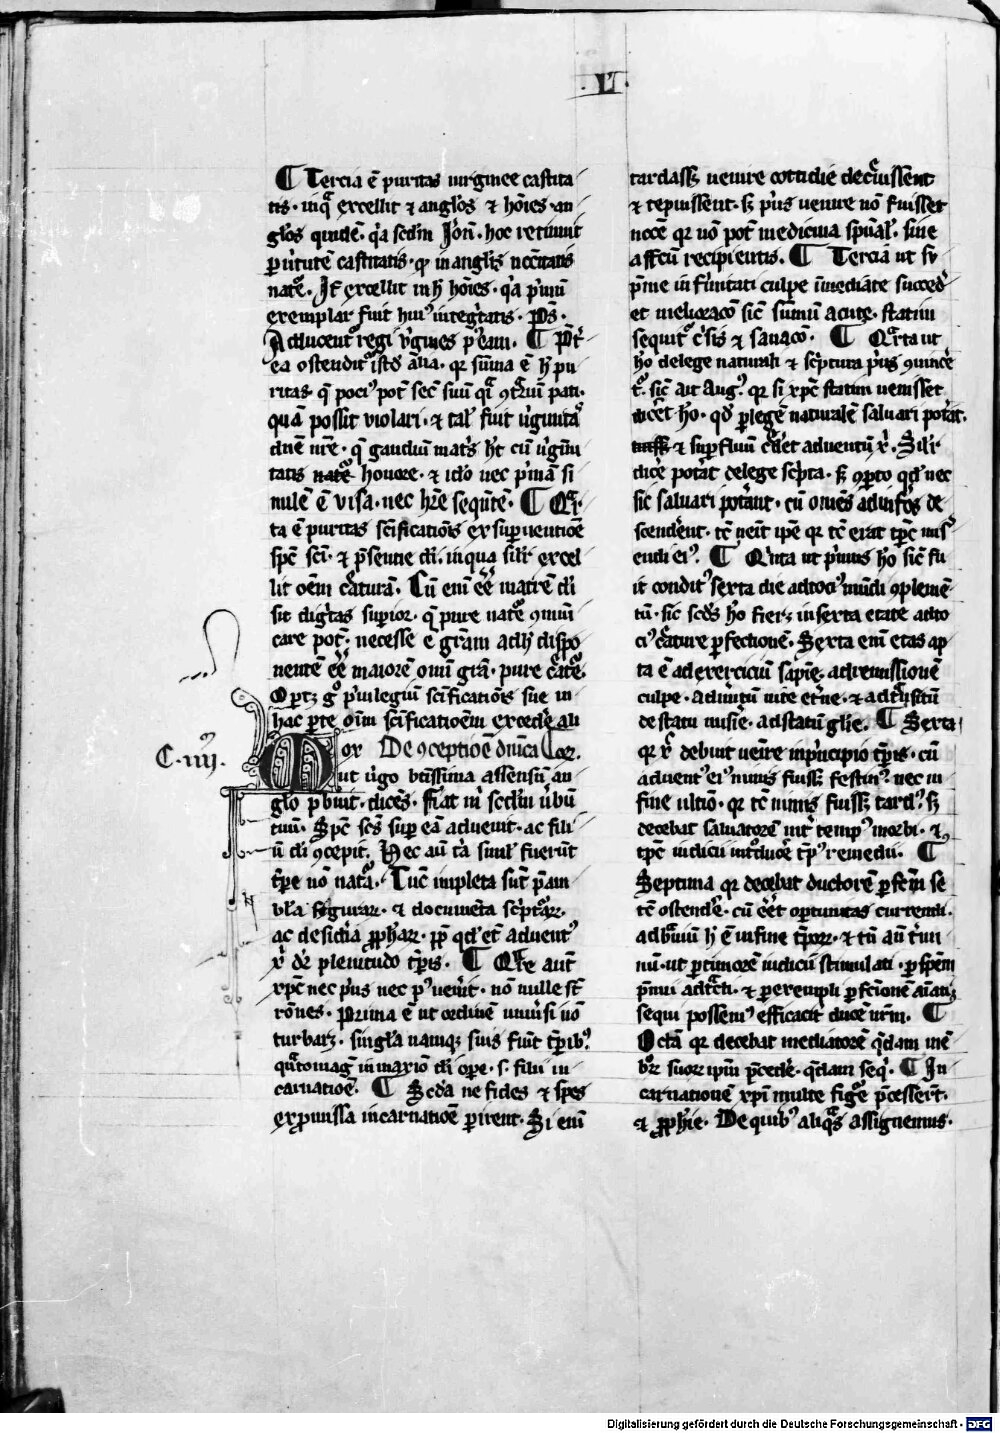 ·LI·
¶ Tercia ē puritas uirginee castita
tis · in qͣ excellit ⁊ anglos ⁊ hoīes · an
glos quidē · qͥa scdm Jōn̄ · hoc retinuit
ꝑ uͥtutē castitatis · qͥ in anglis nccītatis
natͤ · Jt̄ excellit in h̄ hoīes · qͥa pͥmū
exemplar fuit huiꝰ integͥtatis · p̄s̄ ·
Adducentͬ regi uͥgines pꝰ eam · ¶ p̄t̓
ea ostenditͬ istd̄ alia · qꝛ sum̄a ē h̄ pu
ritas · q̄ pociꝰ pot̄ sec̄ suū ꝯtͣriū pati ·
quā possit violari · ⁊ tal̓ fuit uͥginitā
dn̄e nr̄e · q̄ gaudiū matͥs hꝫ cū uͥgini
tatis honore · ⁊ ido̓ nec pͥmā si
milē ē visa · nec hr̄e sequētē · ¶ Qͣr
ta ē puritas scīficatiōis ex suꝑuentiōe
sp̄c sc̄i · ⁊ p̄sentie di̓ · in qua sil̓r excel
lit oēm cͤaturā · Cū eni̓ eē̓ matrē di̓
sit digͥtas suꝑior · q̄ pure natͤ ꝯmūi
care pot̄ · necesse ē grām ad h̄ dispo
nentē eē̓ maiorē omni grā · pure cͤatͤ ·
Oportꝫ gͦ pͥuilegiū scīficatiōis sue in
hac ꝑte oīm scīficatiōem excedē̓ ali
or De ꝯceptiōe dn̄ica oꝛ.
C · iiijͫ ·
Mut uͥgo btīssima assensū an
glo p̄buit · dicēs · Fiat m̄ scdm ūbū
tuū · Sp̄c sc̄s suꝑ eā aduenit · ac fili
ū di̓ ꝯcepit · Nec aū tā simil̓ fuerūt
tp̄re nō natͣ · Tūc impleta sūt p̄am
bl̓a figuraꝝ · ⁊ documēta scͥptͣrꝝ ·
ac desidͥia ꝓphaꝝ · ꝓp̄ qd̓ et̄ aduentꝰ
xͥ dr̄ plenitudo tp̄is · ¶ Qͬe aūt
xp̄c nec pͥus nec pꝰ uenͥit · nō nulle st̄
rōnes · Prima ē ut oꝛdinē uniuͥsi nō
turbaꝫ · singl̓a namqꝫ suis fiūt tp̄ibꝰ ·
qͣtomag̓ in maxiō di̓ oꝑe · s · filii in
carnatiōe · ¶ Scd̓a ne fides ⁊ spes
ex ꝓmissa incarnatiōe ꝑirent · Si eni̓
tardassꝫ uenire cottidie decͤuissent
⁊ tepuissent · sꝫ pͥus uenire nō fuisset
necē qꝛ nō pot̄ medicina spūal̓ · sine
affcū recipientis · ¶ Tercia ut su
pͤme infirmitati culpe īmediāte succed̓
et melioracō sic̄ sum̄ū acute · statim
sequitͬ crͥsis ⁊ sanacō · ¶ Qͣrta ut
ho̓ de lege naturali ⁊ scͥptura pͥus ꝯuincē̓
tͬ · sic̄ ait Augꝰ · qꝛ si xp̄c statim uenisset
dicͤet ho̓ · qd̓ ꝑ legē naturalē saluari potͥat ·
⁊ suꝑfluū cͤdēt aduentū xͥ · Sil̓r
dicē̓ potͥat de lege scͥpta · sꝫ ꝯꝑto qd̓ nec
sic saluari potͥant · cū om̄es ad infͦs de
scendēnt · tc̄ uēit ip̄e qꝛ tc̄ erat tp̄c mis
endi eiꝰ · ¶ Qͥnta ut pͥmus ho̓ sic̄ fu
it conditꝰ sexta die ad tociꝰ mūdi ꝯplemē
tū · sic scd̓s ho̓ fierꝫ in sexta etate ad to
ciꝰ cͤature ꝑfectionē · Sexta eni̓ etas ap
ta ē ad exerciciū sapīe · ad remissionē
culpe · ad inītiū uite et̓ne · ⁊ ad tͣnsitū
de statu misͥie · ad statū glīe · ¶ Sexta
qꝛ xͥ debuit uenīre in pͥncipio tp̄is · cū
aduentꝰ eiꝰ nimis fuissꝫ festinꝰ · nec in
fine ultiō · qꝛ tc̄ nimis fuissꝫ tardꝰ · sꝫ
decebat saluatorē int̓ tempꝰ morbi · ⁊
tp̄c iudicii int͛ducē̓ tp̄ꝰ remedii · ¶
Septima qꝛ decebat ductorē ꝑfcm̄ se
tc̄ ostendē̓ · cū eēt oportunitas currendi ·
ad brauiū h̄ ē in fine tp̄oꝝ · ⁊ tn̄ aū tͥmi
nū · ut ꝑ timorē iudicii stimulati · ꝑ spēm
p̄mii adtͣcti · ⁊ ꝑ exempli ꝑfcīonē aīati
sequi possemꝰ efficacit̓ ducē nr̄m · ¶
Octā qꝛ decebat mediatorē qͣdam mē
bͬꝝ suoꝝ ip̄m p̄cedē̓ · qͣdam seqͥ · ¶ In
carnationē xp̄i multe figͤe p̄cesserūt ·
⁊ ꝓphīe · De quibꝰ aliqͣs assignemus ·
Digitalisierung gefördert durch die Deutsche Forschungsgemeinschaft · DFG